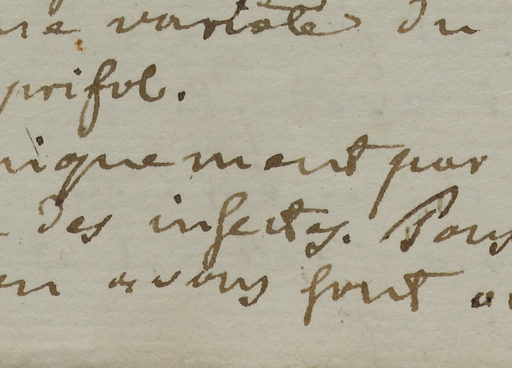 variété du
prifol.
niquement par
des insectes. Tous
en avons sont